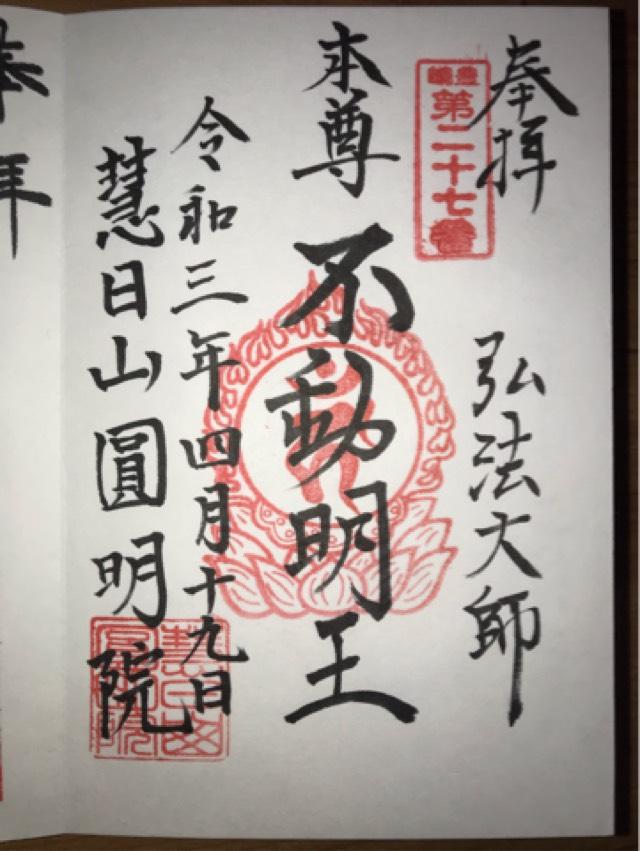 奉拝
弘法大師
豊嶋
第二十七番
本尊
不動明王
令和三年四月十九日
慧日山圓明院
奉拝